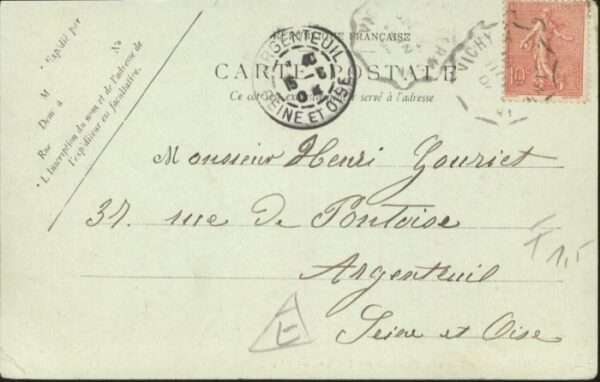 RÉPUBLIQUE FRANÇAISE
CARTE POSTALE
Ce côté est exclusivement réservé à l'adresse
Expédié par
M
Nº
Demt à
Rue
L'Inscription du nom et de l'adresse de
l'expéditeur est facultative.
ARGENTEUIL
04
SEINE ET OISE
VICHY
10
Monsieur Henri Gouriet
37. rue de Pontoise
Argenteuil
Seine et Oise
E
1,5